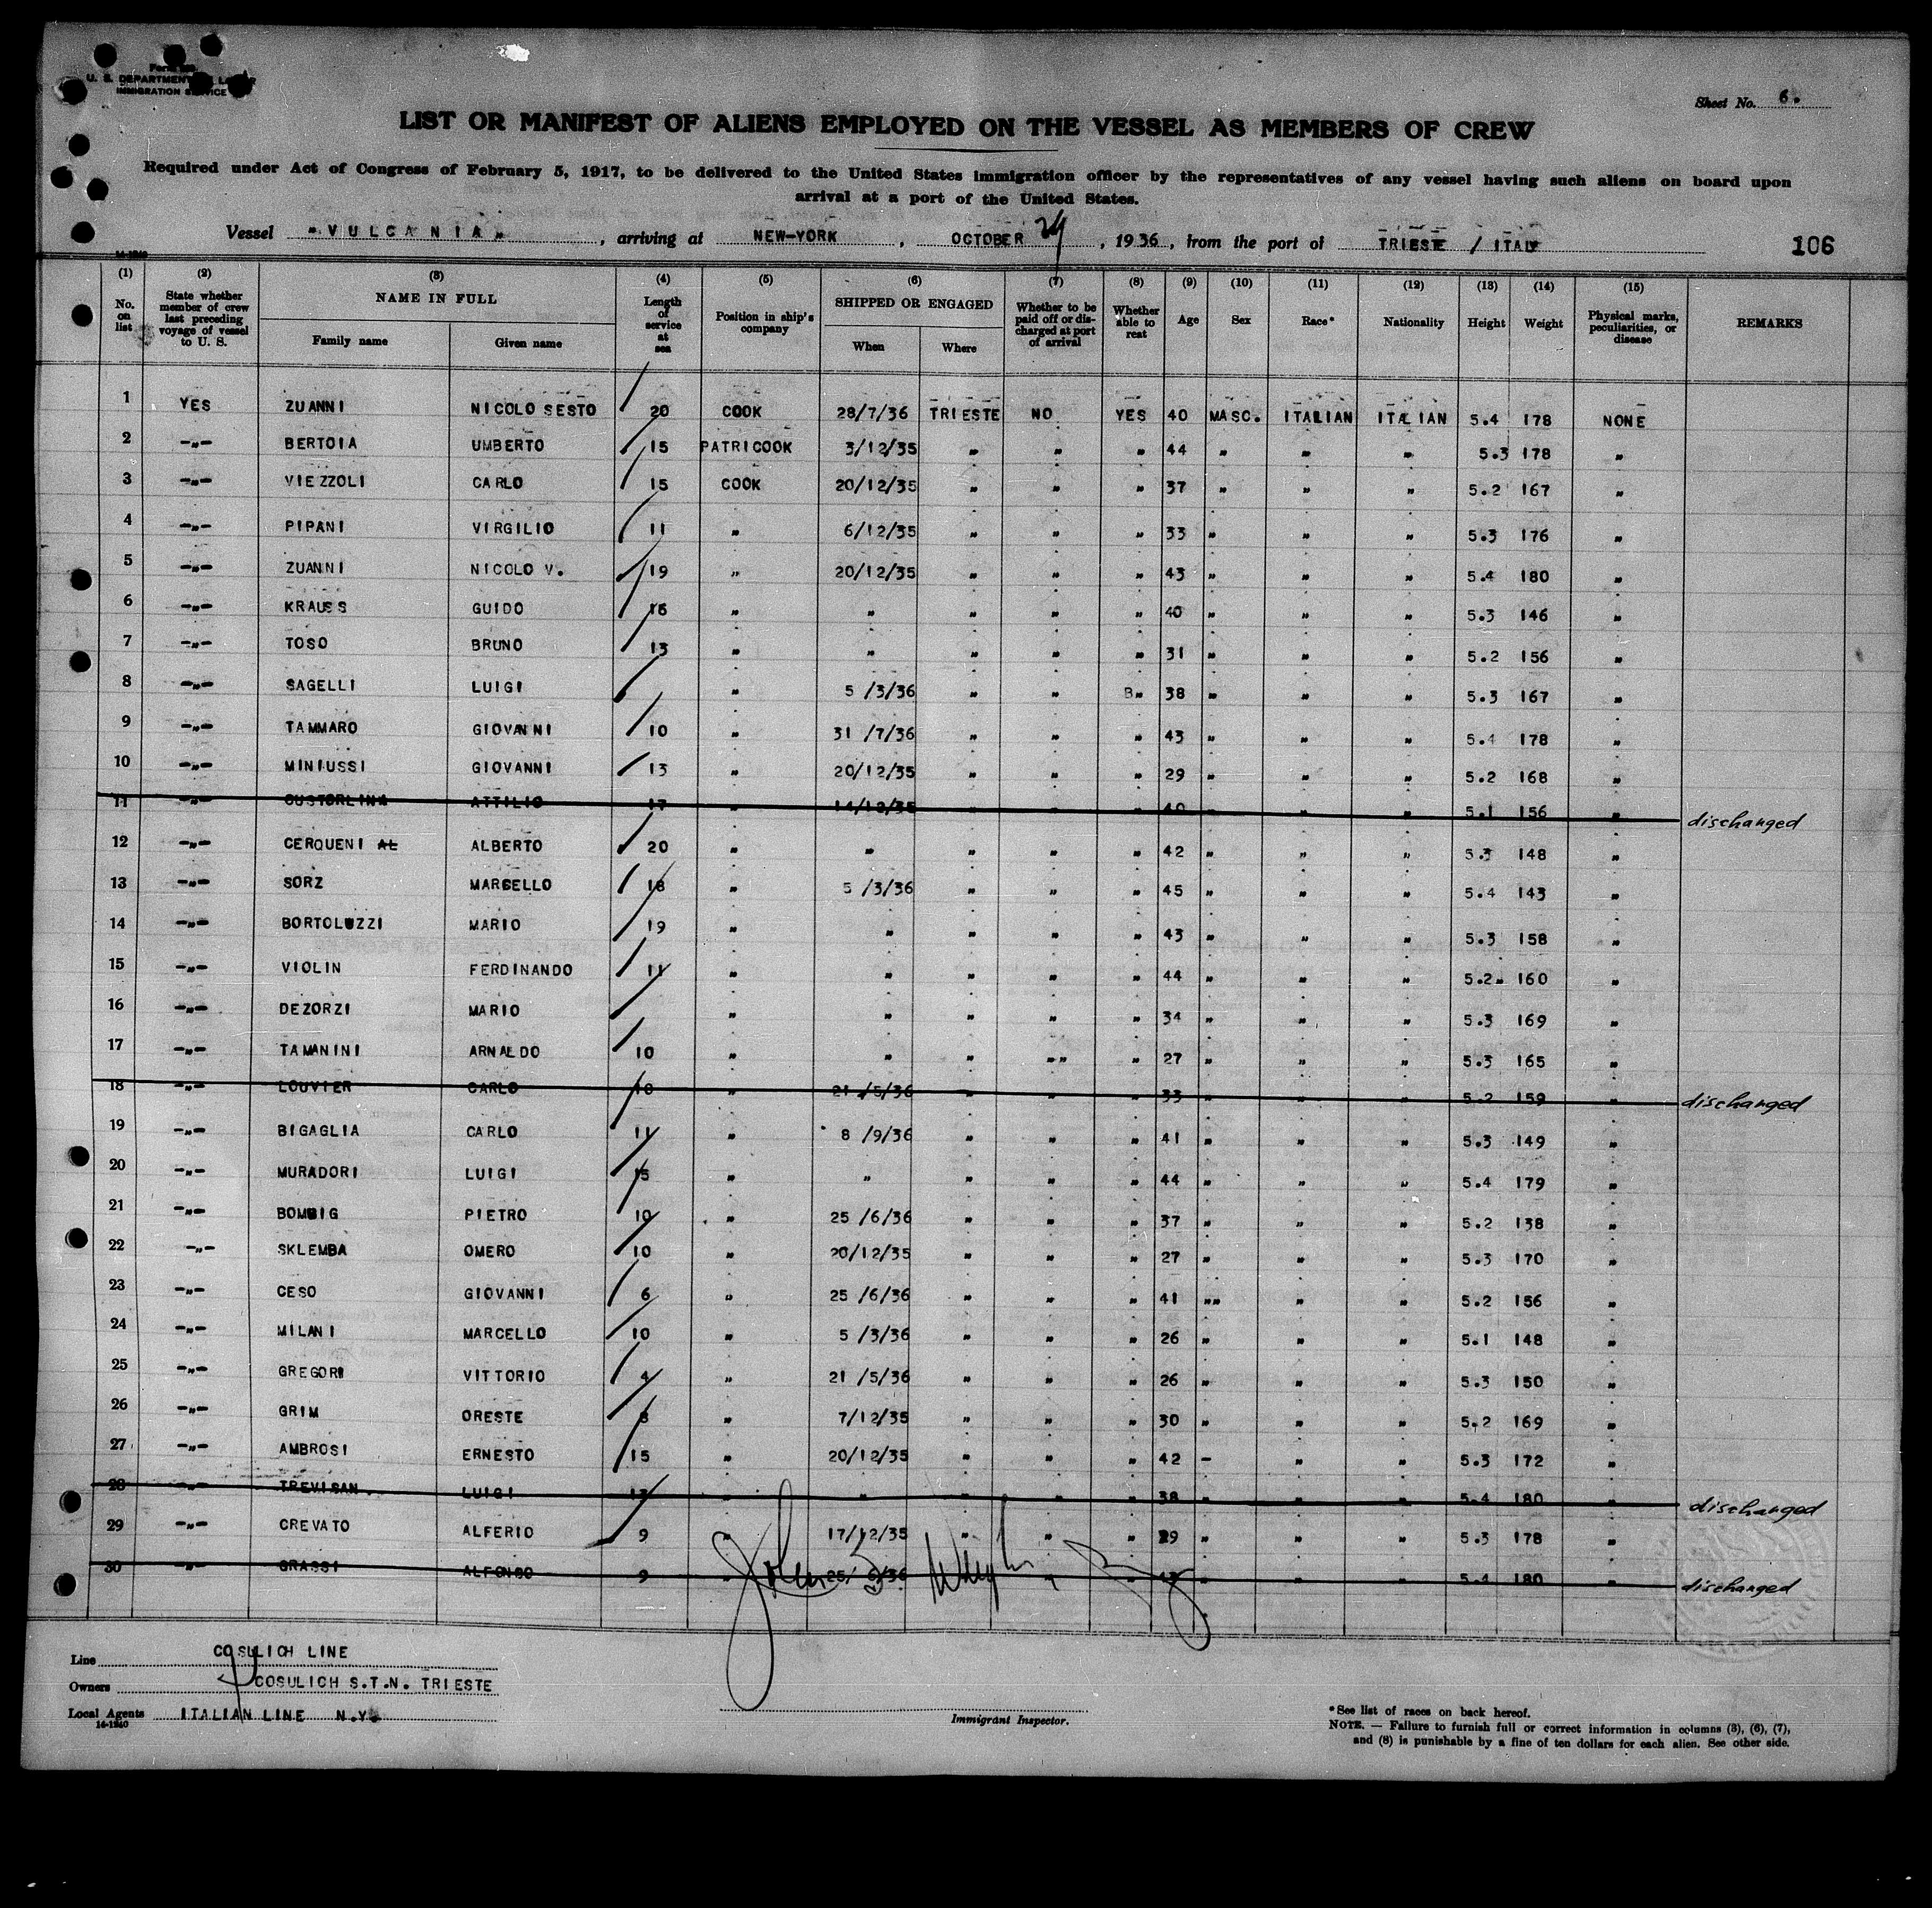 U. S. DEPARTMENT OF LABOR
IMMIGRATION SERVICE
Sheet No. 6.
LIST OR MANIFEST OF ALIENS EMPLOYED ON THE VESSEL AS MEMBERS OF CREW
Required under Act of Congress of February 5, 1917, to be delivered to the United States immigration officer by the representatives of any vessel having such aliens on board upon
arrival at a port of the United States.
Vessel "VULCANIA", arriving at NEW-YORK, OCTOBER 24, 1936, from the port of TRIESTE / ITALY 106
(1) No. on list (2) State whether member of crew last preceding voyage of vessel to U. S. (3) NAME IN FULL Family name Given name (4) Length of service at sea (5) Position in ship's company (6) SHIPPED OR ENGAGED When Where (7) Whether to be paid off or discharged at port of arrival (8) Whether able to reat (9) Age (10) Sex (11) Race* (12) Nationality (13) Height (14) Weight (15) Physical marks, peculiarities, or disease REMARKS
1 YES ZUANNI NICOLO SESTO 20 COOK 28/7/36 TRIESTE NO YES 40 MASC. ITALIAN ITALIAN 5.4 178 NONE
2 -"- BERTOIA UMBERTO 15 PATRICOOK 3/12/35 " " " 44 " " " 5.3 178 "
3 -"- VIEZZOLI CARLO 15 COOK 20/12/35 " " " 37 " " " 5.2 167 "
4 -"- PIPANI VIRGILIO 11 " 6/12/35 " " " 33 " " " 5.3 176 "
5 -"- ZUANNI NICOLO V. 19 " 20/12/35 " " " 43 " " " 5.4 180 "
6 -"- KRAUSS GUIDO 16 " " " " " 40 " " " 5.3 146 "
7 -"- TOSO BRUNO 13 " " " " " 31 " " " 5.2 156 "
8 -"- SAGELLI LUIGI " 5 /3/36 " " B" 38 " " " 5.3 167 "
9 -"- TAMMARO GIOVANNI 10 " 31 /7/36 " " " 43 " " " 5.4 178 "
10 -"- MINIUSSI GIOVANNI 13 " 20/12/35 " " " 29 " " " 5.2 168 "
11 -"- ATTILIO 17 " 14/12/35 " " " 40 " " " 5.1 156 " discharged
12 -"- CERQUENI AL ALBERTO 20 " " " " " 42 " " " 5.3 148 "
13 -"- SORZ MARSELLO 18 " 5 /3/36 " " " 45 " " " 5.4 143 "
14 -"- BORTOLUZZI MARIO 19 " " " " " 43 " " " 5.3 158 "
15 -"- VIOLIN FERDINANDO 11 " " " " " 44 " " " 5.2" 160 "
16 -"- DEZORZI MARIO " " " " " 34 " " " 5.3 169 "
17 -"- TAMANINI ARNALDO 10 " " " "" " 27 " " " 5.3 165 "
18 -"- LOUVIER CARLO 10 " 21 /5/36 " " " 33 " " " 5.2 159 " discharged
19 -"- BIGAGLIA CARLO 11 " 8 /9/36 " " " 41 " " " 5.3 149 "
20 -"- MURADORI LUIGI 15 " " " " " 44 " " " 5.4 179 "
21 -"- BOMBIG PIETRO 10 " 25 /6/36 " " " 37 " " " 5.2 138 "
22 -"- SKLEMBA OMERO 10 " 20/12/35 " " " 27 " " " 5.3 170 "
23 -"- CESO GIOVANNI 6 " 25 /6/36 " " " 41 "" " " 5.2 156 "
24 -"- MILANI MARCELLO 10 " 5 /3/36 " " " 26 " " " 5.1 148 "
25 -"- GREGORI VITTORIO 4 " 21 /5/36 " " " 26 " " " 5.3 150 "
26 -"- GRIM ORESTE 8 " 7/12/35 " " " 30 " " " 5.2 169 "
27 -"- AMBROSI ERNESTO 15 " 20/12/35 " " " 42 - " " 5.3 172 "
28 -"- TREVISAN LUIGI 17 " " " " " 38 " " " 5.4 180 " discharged
29 -"- CREVATO ALFERIO 9 " 17/12/35 " " " 29 " " " 5.3 178 "
30 -"- GRASSI ALFONSO 9 " " " " " " " 5.4 180 " discharged
Line COSULICH LINE
Owners COSULICH S.T.N. TRIESTE
Local Agents ITALIAN LINE N.Y.
14-1240
Immigrant Inspector.
*See list of races on back hereof.
NOTE. — Failure to furnish full or correct information in columns (3), (6), (7),
and (8) is punishable by a fine of ten dollars for each alien. See other side.